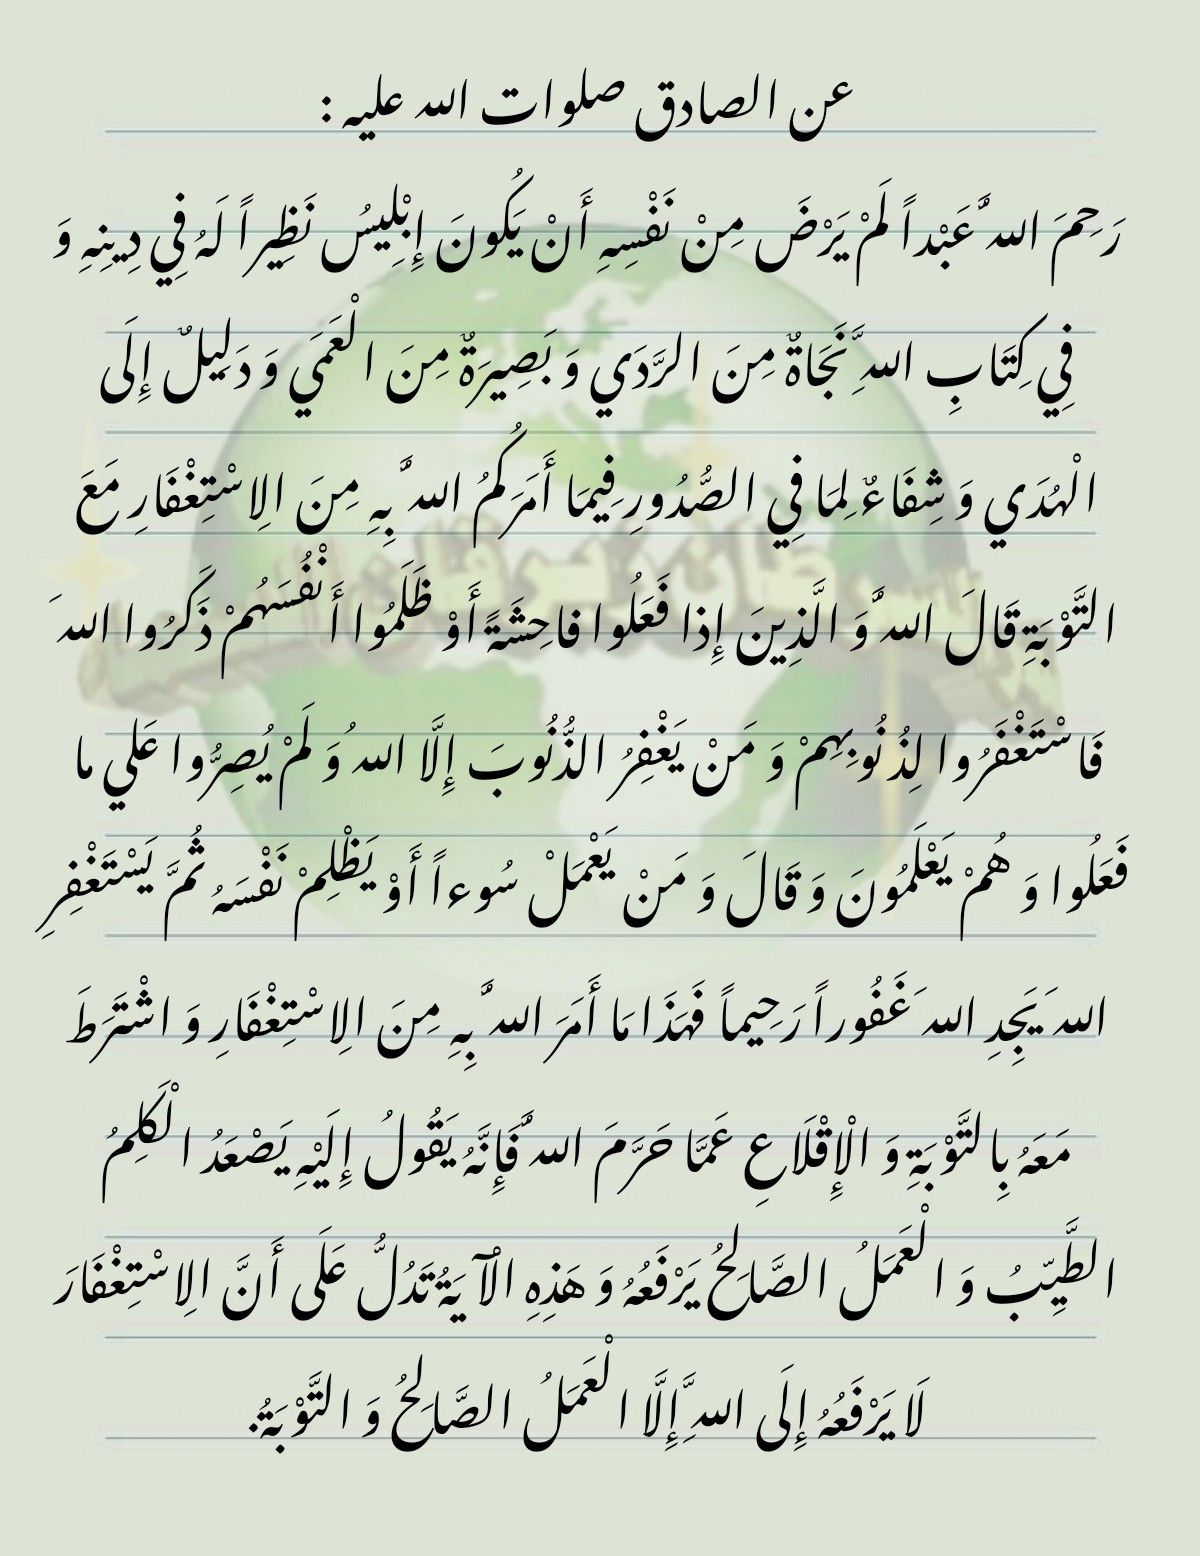 عن الصادق صلوات الله عليه :
رَحِمَ اللهُ عَبْداً لَمْ يَرْضَ مِنْ نَفْسِهِ أَنْ يَكُونَ إِبْلِيسُ نَظِيراً لَهُ فِي دِينِهِ وَ
فِي كِتَابِ اللهِ نَجَاةٌ مِنَ الرَّدَي وَ بَصِيرَةٌ مِنَ الْعَمَي وَ دَلِيلٌ إِلَى
الْهُدَي وَ شِفَاءٌ لِمَا فِي الصُّدُورِ فِيمَا أَمَرَكُمُ اللهُ بِهِ مِنَ الِاسْتِغْفَارِ مَعَ
التَّوْبَةِ قَالَ اللهُ وَ الَّذِينَ إِذا فَعَلُوا فاحِشَةً أَوْ ظَلَمُوا أَنْفُسَهُمْ ذَكَرُوا اللهَ
فَاسْتَغْفَرُوا لِذُنُوبِهِمْ وَ مَنْ يَغْفِرُ الذُّنُوبَ إِلَّا اللهُ وَ لَمْ يُصِرُّوا عَلي ما
فَعَلُوا وَ هُمْ يَعْلَمُونَ وَ قَالَ وَ مَنْ يَعْمَلْ سُوءاً أَوْ يَظْلِمْ نَفْسَهُ ثُمَّ يَسْتَغْفِرِ
اللهَ يَجِدِ اللهَ غَفُوراً رَحِيماً فَهَذَا مَا أَمَرَ اللهُ بِهِ مِنَ الِاسْتِغْفَارِ وَ اشْتَرَطَ
مَعَهُ بِالتَّوْبَةِ وَ الْإِقْلَاعِ عَمَّا حَرَّمَ اللهُ فَإِنَّهُ يَقُولُ إِلَيْهِ يَصْعَدُ الْكَلِمُ
الطَّيِّبُ وَ الْعَمَلُ الصَّالِحُ يَرْفَعُهُ وَ هَذِهِ الْآيَةُ تَدُلُّ عَلَى أَنَّ الِاسْتِغْفَارَ
لَا يَرْفَعُهُ إِلَى اللهِ إِلَّا الْعَمَلُ الصَّالِحُ وَ التَّوْبَةُ.